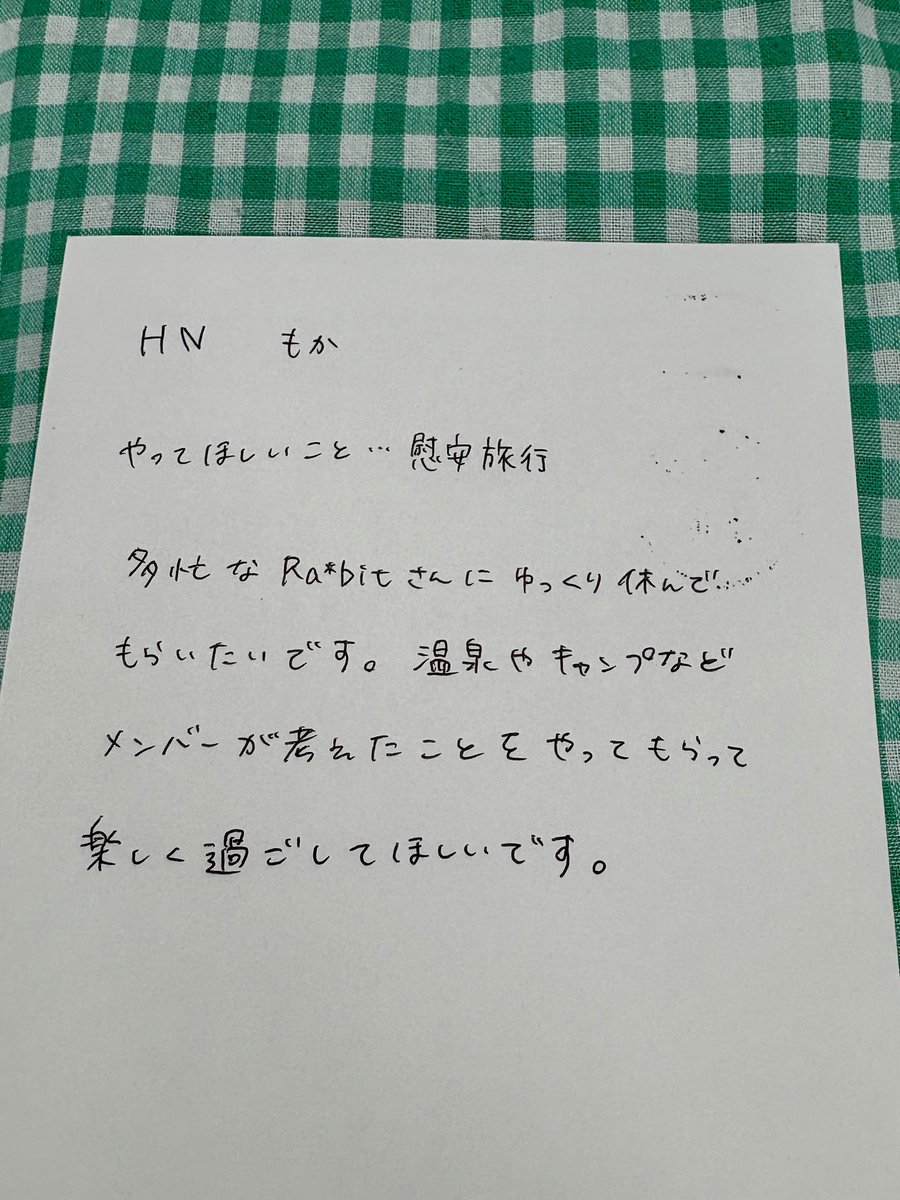 HN もか
やってほしいこと…慰安旅行
多忙な Ra*bitさんに ゆっくり休んで
もらいたいです。温泉やキャンプなど
メンバーが考えたことをやってもらって
楽しく過ごしてほしいです。